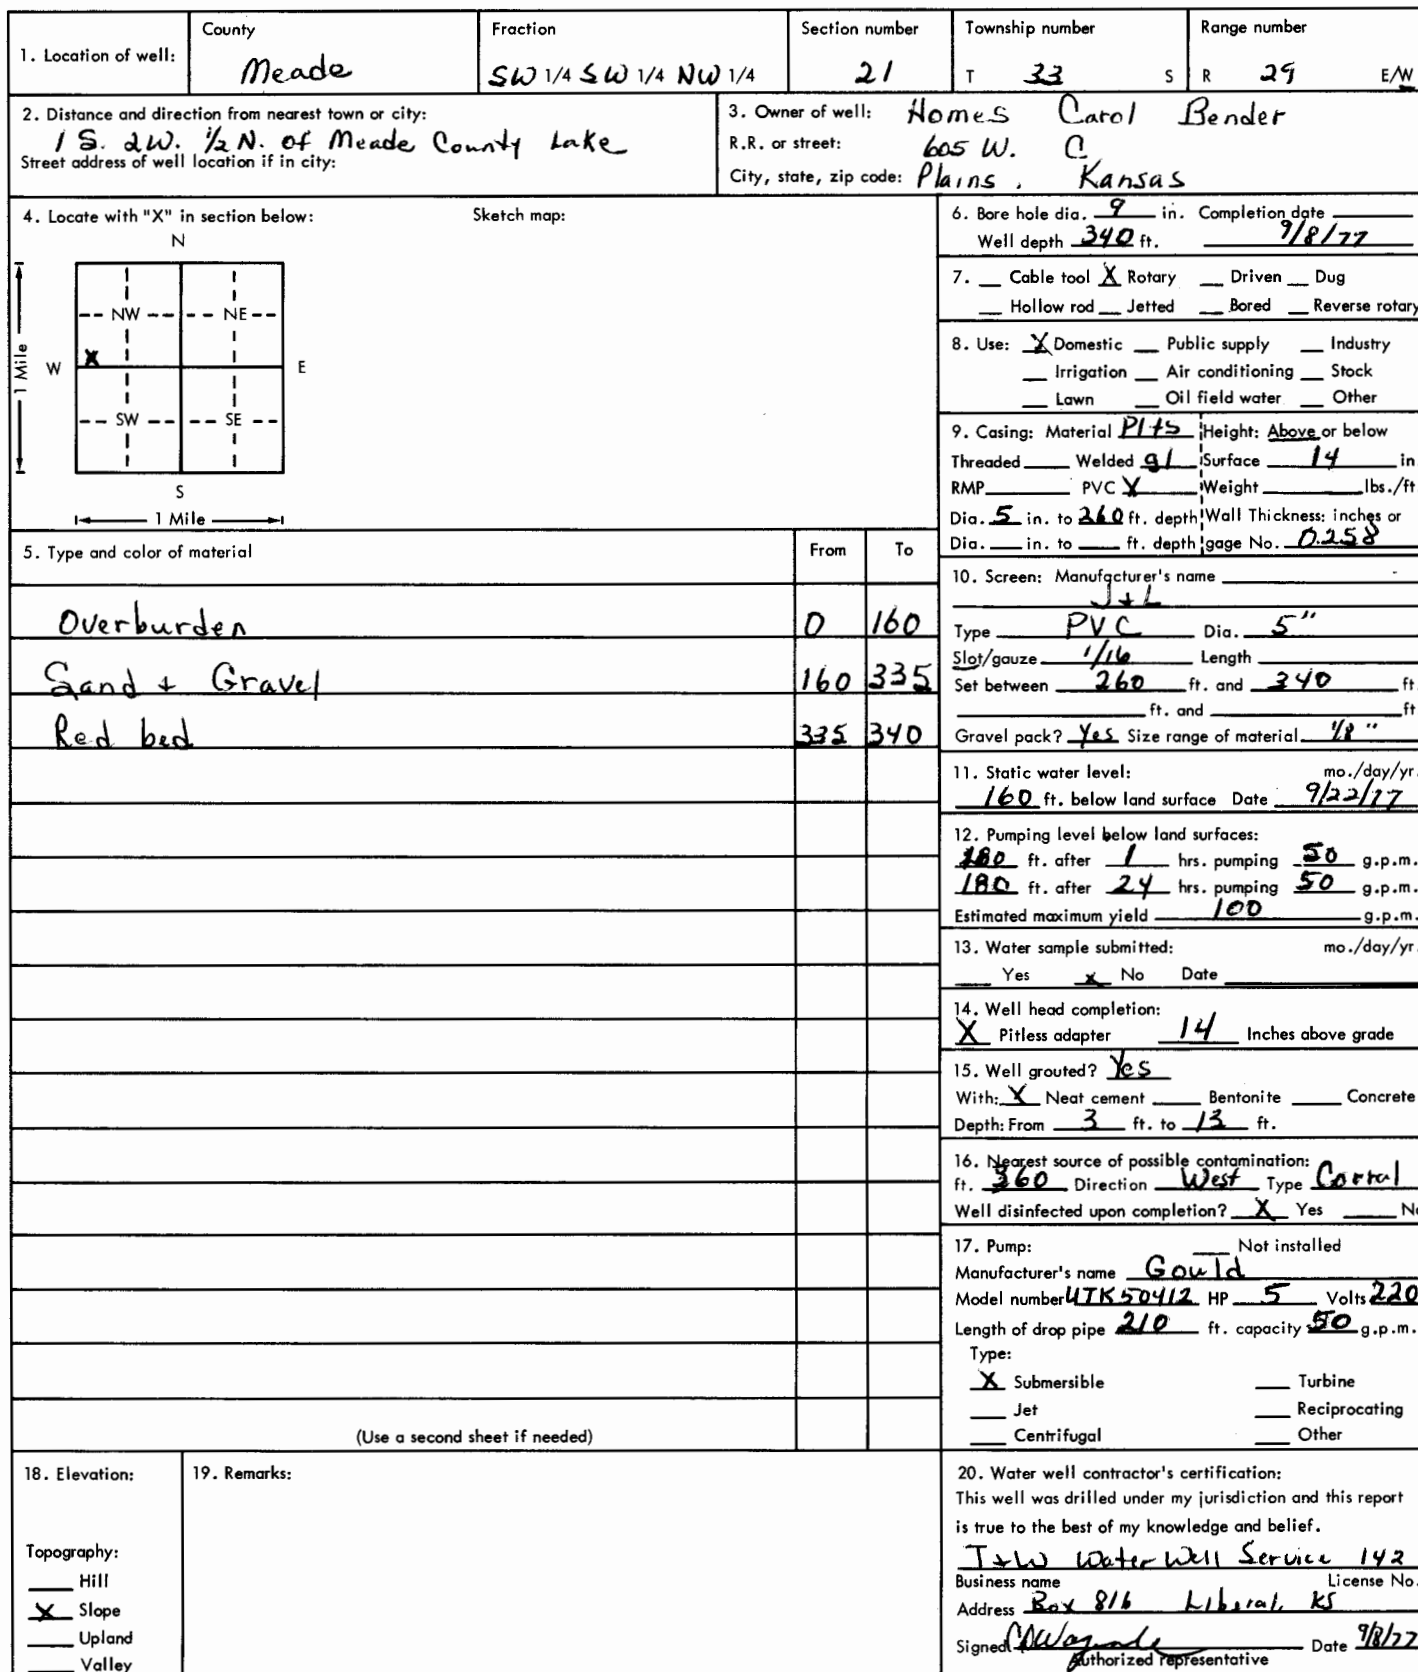 1. Location of well:
County
Meade
Fraction
SW 1/4 SW 1/4 NW 1/4
Section number
21
Township number
T 33 S
Range number
R 29 E/W
2. Distance and direction from nearest town or city:
1 S. 2W. 1/2 N. of Meade County Lake
Street address of well location if in city:
3. Owner of well: Homes Carol Bender
R.R. or street: 605 W. C
City, state, zip code: Plains, Kansas
4. Locate with "X" in section below:
Sketch map:
N
NW NE
X
W E
SW SE
S
1 Mile
1 Mile
5. Type and color of material From To
Overburden 0 160
Sand + Gravel 160 335
Red bed 335 340
(Use a second sheet if needed)
6. Bore hole dia. 9 in. Completion date
Well depth 340 ft. 9/8/77
7. __ Cable tool X Rotary __ Driven __ Dug
__ Hollow rod __ Jetted __ Bored __ Reverse rotary
8. Use: X Domestic __ Public supply __ Industry
__ Irrigation __ Air conditioning __ Stock
__ Lawn __ Oil field water __ Other
9. Casing: Material Plts Height: Above or below
Threaded ____ Welded gl Surface 14 in
RMP ____ PVC X Weight ____ lbs./ft
Dia. 5 in. to 260 ft. depth Wall Thickness: inches or
Dia. __ in. to __ ft. depth gage No. 0.258
10. Screen: Manufacturer's name
J + L
Type PVC Dia. 5"
Slot/gauze 1/16 Length ____
Set between 260 ft. and 340 ft.
____ ft. and ____ ft
Gravel pack? Yes Size range of material 1/8 "
11. Static water level: mo./day/yr.
160 ft. below land surface Date 9/22/77
12. Pumping level below land surfaces:
180 ft. after 1 hrs. pumping 50 g.p.m.
180 ft. after 24 hrs. pumping 50 g.p.m.
Estimated maximum yield 100 g.p.m.
13. Water sample submitted: mo./day/yr.
__ Yes x No Date ____
14. Well head completion:
X Pitless adapter 14 Inches above grade
15. Well grouted? Yes
With: X Neat cement ____ Bentonite ____ Concrete
Depth: From 3 ft. to 13 ft.
16. Nearest source of possible contamination:
ft. 360 Direction West Type Corral
Well disinfected upon completion? X Yes ____ No
17. Pump: ____ Not installed
Manufacturer's name Gould
Model number UTK50412 HP 5 Volts 220
Length of drop pipe 210 ft. capacity 50 g.p.m.
Type:
X Submersible ____ Turbine
____ Jet ____ Reciprocating
____ Centrifugal ____ Other
18. Elevation:
Topography:
____ Hill
X Slope
____ Upland
____ Valley
19. Remarks:
20. Water well contractor's certification:
This well was drilled under my jurisdiction and this report
is true to the best of my knowledge and belief.
T+W Water Well Service 142
Business name License No.
Address Box 816 Liberal, KS
Signed Date 9/8/77
Authorized representative